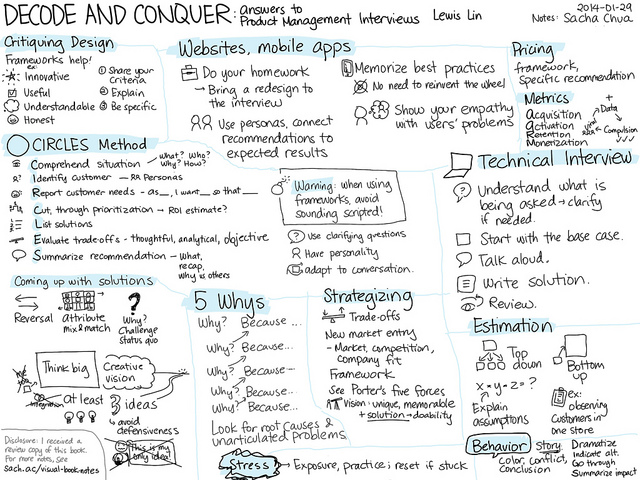 DECODE AND CONQUER: Answers to
Product Management Interviews
Lewis Lin
2014-01-29
Notes: Sacha Chua
Critiquing Design
Frameworks help!
ex:
Innovative
Useful
Understandable
Honest
① Share your
criteria
② Explain
③ Be specific
Websites, mobile apps
Do your homework
→ Bring a redesign to
the interview
Use personas, connect
recommendations to
expected results
Memorize best practices
No need to reinvent the wheel
Show your empathy
with users' problems
Pricing
framework,
specific recommendation
Metrics
Acquisition
Activation
Retention
Monetization
+
Data
Compulsion
CIRCLES Method
Comprehend situation
What? Who?
Why? How?
Identify customer — Personas
Report customer needs - as__, I want__ so that__
Cut, through prioritization → ROI estimate?
List solutions
Evaluate trade-offs - thoughtful, analytical, objective
Summarize recommendation — What,
recap,
why vs others
Warning: when using
frameworks, avoid
sounding scripted!
Use clarifying questions
Have personality
adapt to conversation.
Technical Interview
Understand what is
being asked → clarify
if needed.
Start with the base case.
Talk aloud.
Write solution.
Review.
Coming up with solutions
Reversal
attribute
mix & match
?
Why?
Challenge
status quo
Think big
Creative
vision
Integration
at least 3 ideas
↳ avoid
defensiveness
This is my
only idea!
Disclosure: I received a
review copy of this book.
For more notes, see
sach.ac/visual-book-notes
5 Whys
Why? Because...
Why? Because...
Why? Because—
Why? Because...
Why? Because...
Look for root causes &
unarticulated problems
Strategizing
Trade-offs
New market entry
- Market, competition,
company fit
Framework
See Porter's five forces
Vision: unique, memorable
+ solution → doability
Stress → Exposure, practice; reset if stuck
Estimation
Top
down
Bottom
up
x · y · z = ?
Explain
assumptions
ex:
observing
customers in
one store
Behavior
Story
Color, conflict,
Conclusion
Dramatize
Indicate alt.
Go through
Summarize impact